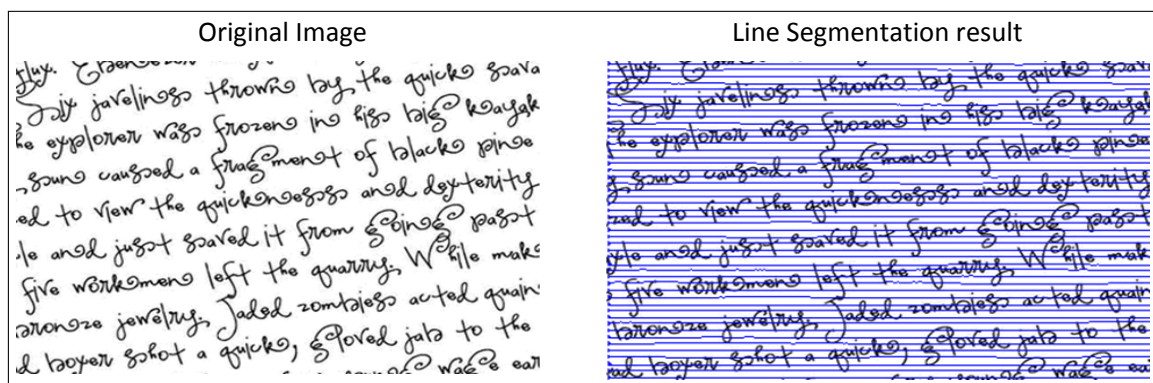 Original Image
flux.
Six javelins thrown by the quick sava
he explorer was frozen in his big kayak
caused a fragment of black pine
ed to view the quickness and dexterity
le and just saved it from going past
five workmen left the quarry. While mak
bronze jewelry. Jaded zombies acted quain
d boxer shot a quick, gloved jab to the
ear
Line Segmentation result
flux.
Six javelins thrown by the quick sava
he explorer was frozen in his big kayak
caused a fragment of black pine
ed to view the quickness and dexterity
le and just saved it from going past
five workmen left the quarry. While mak
bronze jewelry. Jaded zombies acted quain
d boxer shot a quick, gloved jab to the
ear